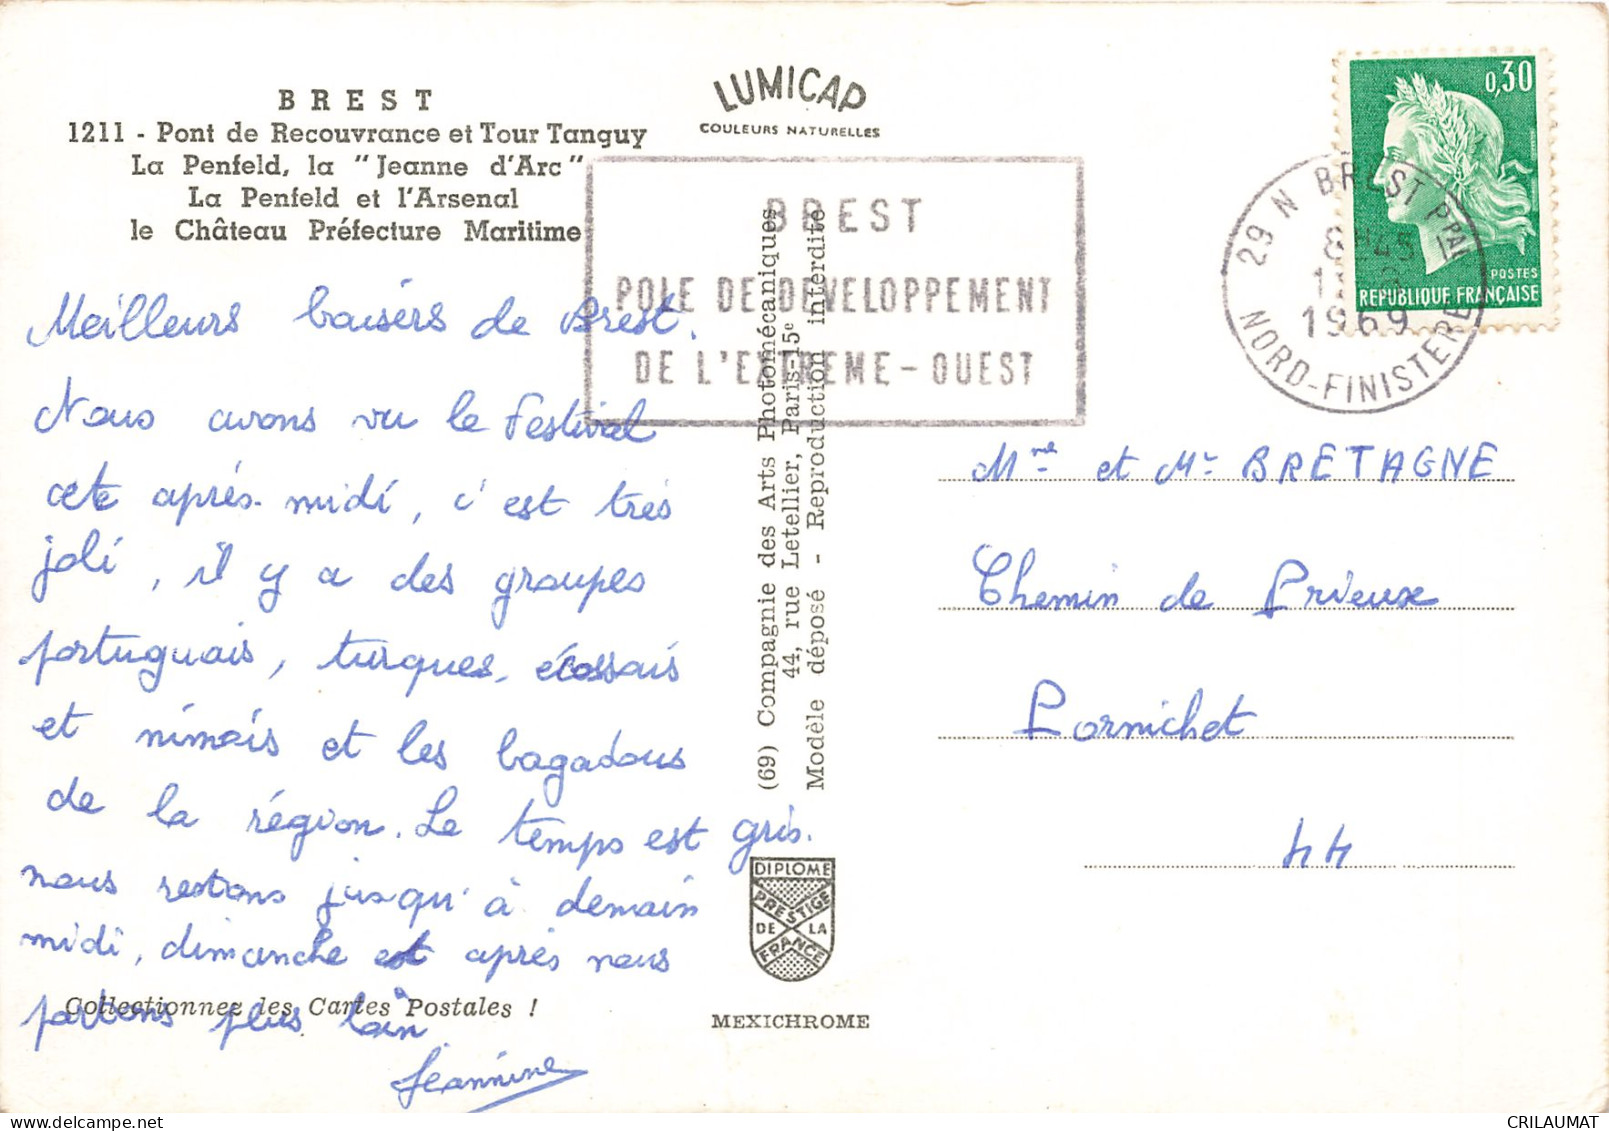 BREST
1211 - Pont de Recouvrance et Tour Tanguy
La Penfeld, la "Jeanne d'Arc"
La Penfeld et l'Arsenal
le Château Préfecture Maritime
LUMICAP
COULEURS NATURELLES
BREST
POLE DE DEVELOPPEMENT
DE L'EXTREME-OUEST
0,30
POSTES
REPUBLIQUE FRANÇAISE
29 N BREST PPAL
8H45
1969
NORD-FINISTERE
Meilleurs baisers de Brest.
Nous avons vu le Festival
cete après-midi, c'est très
joli, il y a des groupes
portuguais, turques, écossais
et nimois et les bagadous
de la région. Le temps est gris.
nous restons jusqu'à demain
midi, dimanche et après nous
partons plus loin
Jeannine
Collectionnez les Cartes Postales !
(69) Compagnie des Arts Photomécaniques
44, rue Letellier, Paris-15e
Modèle déposé - Reproduction interdite
DIPLOME
PRESTIGE
DE LA
FRANCE
MEXICHROME
Mme et Mr BRETAGNE
Chemin de Prieux
Pornichet
44
CRILAUMAT